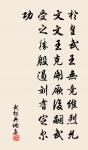 於皇武王無競維烈允
文文王克開厥後嗣武
受之勝殷遏劉耆定爾
功